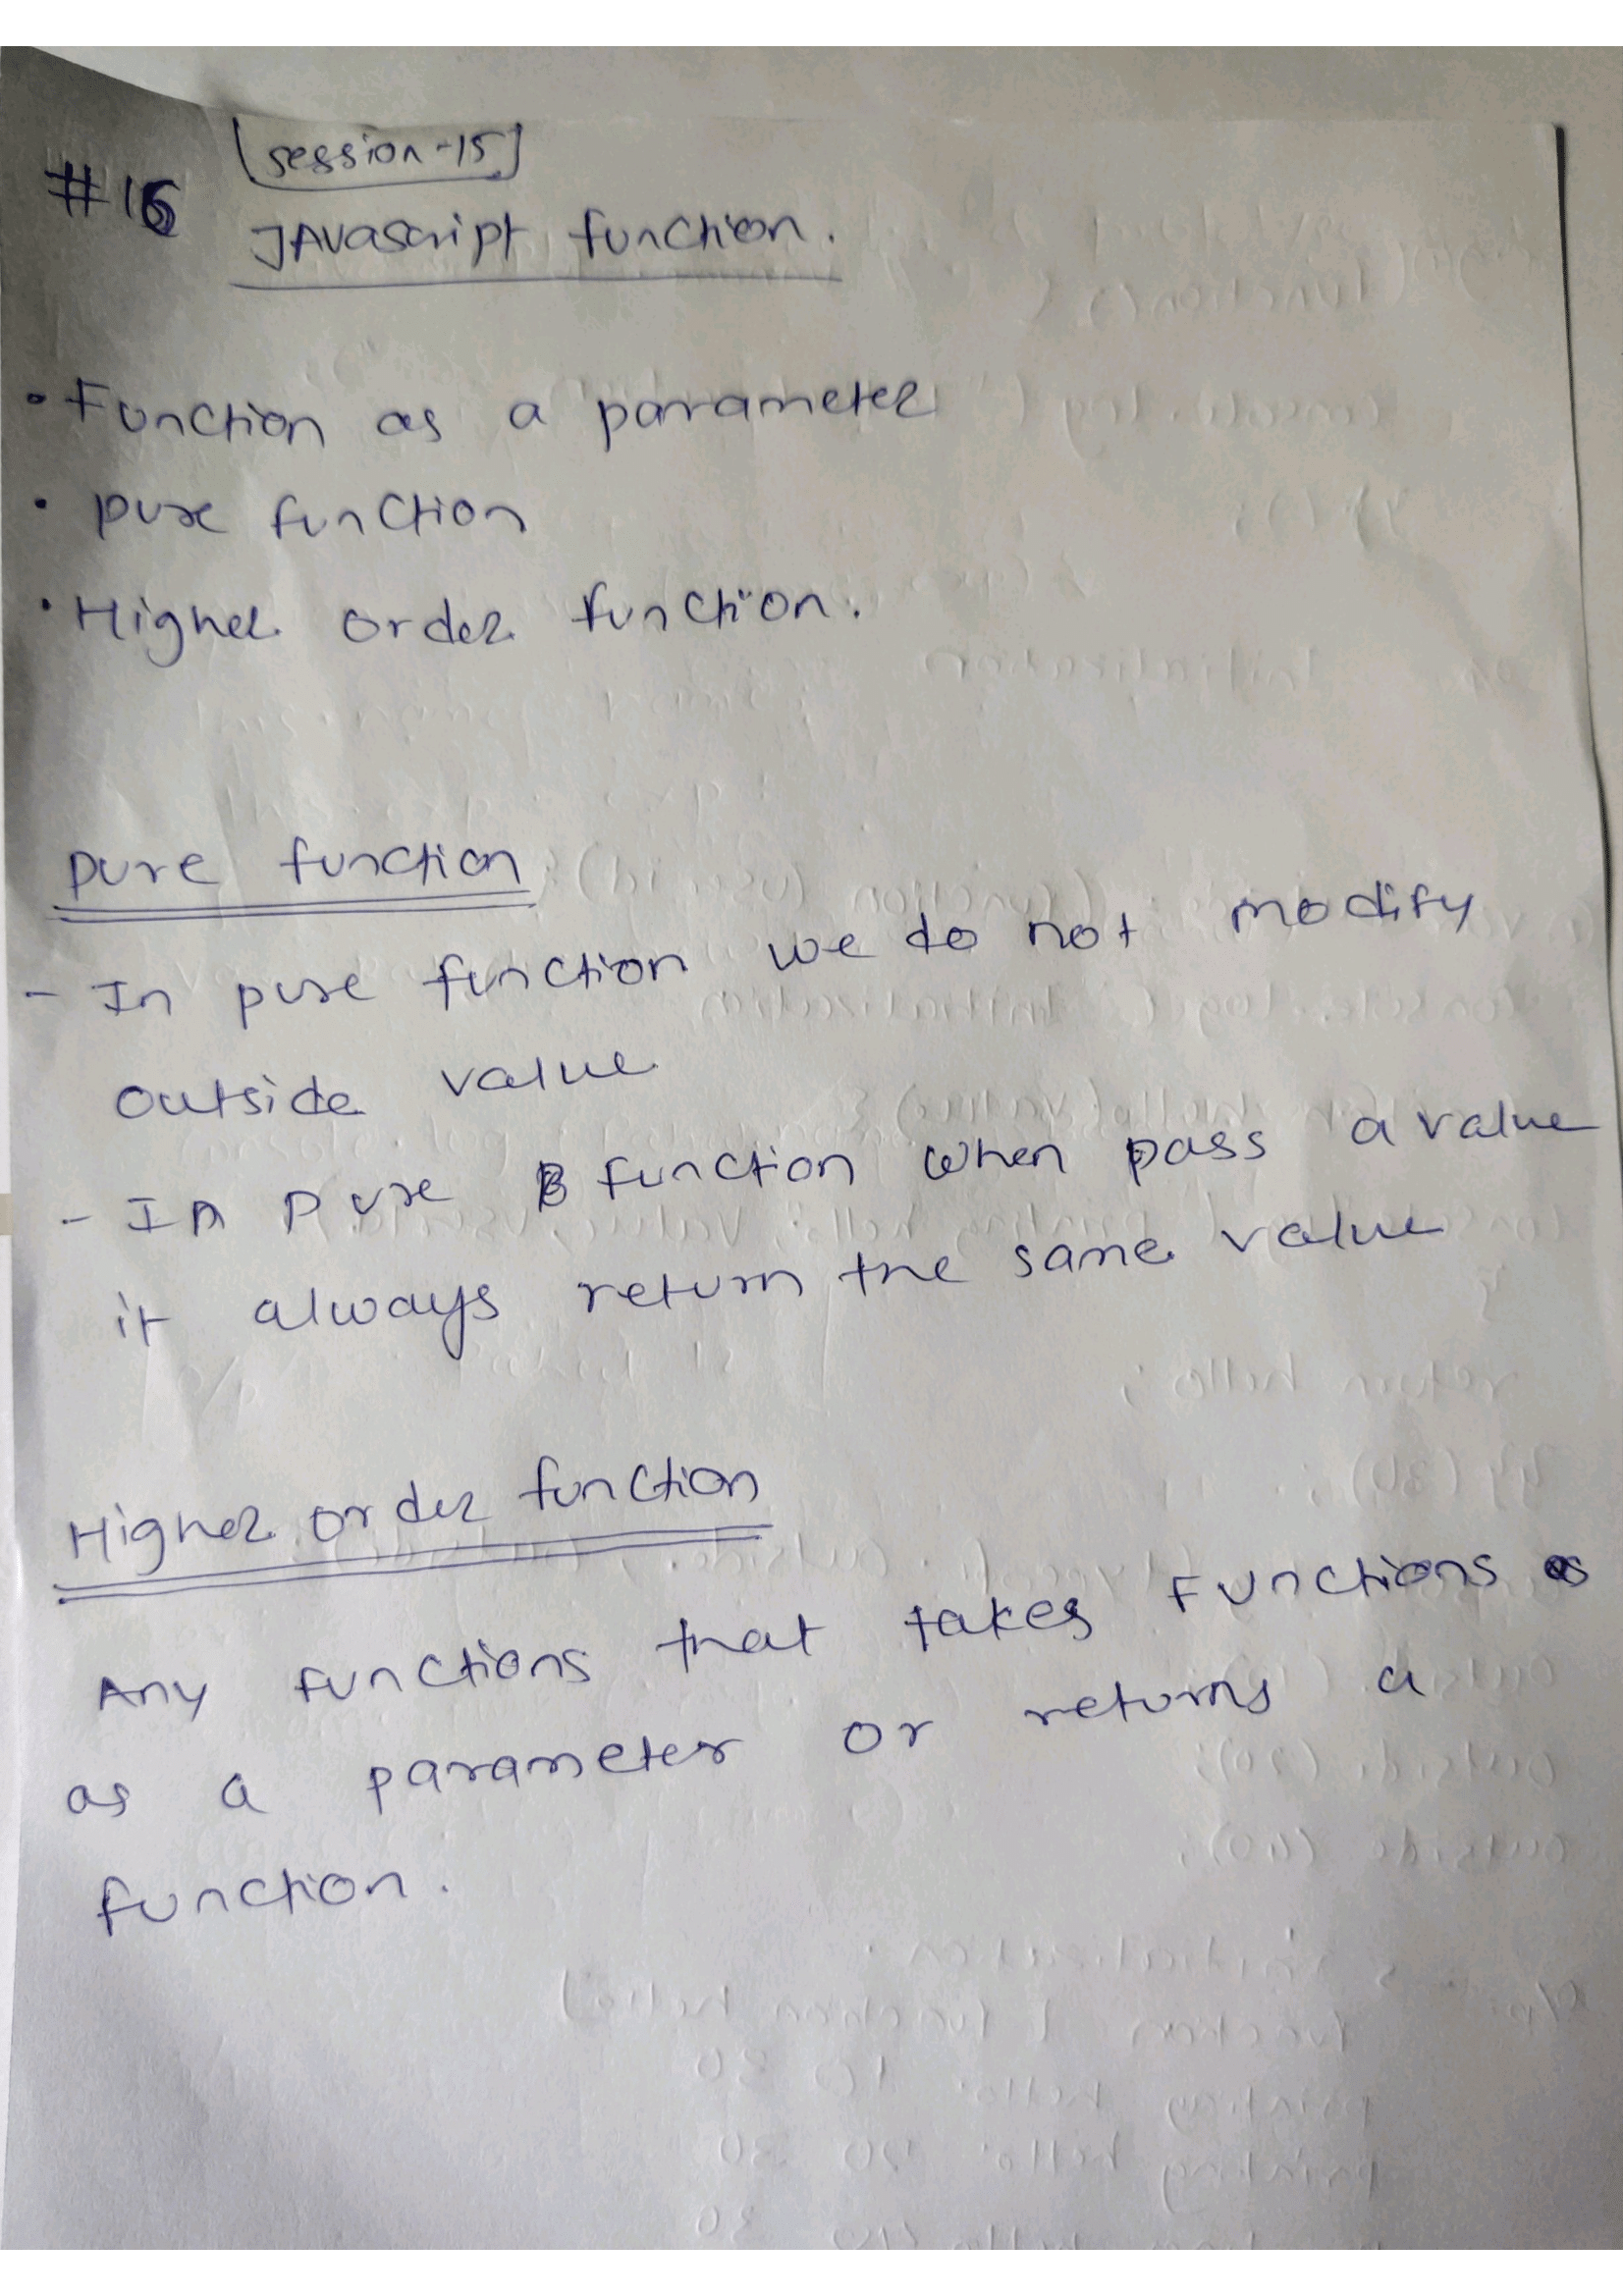 [session-15]
#16
JAVAscript function.
• Function as a parameter
• pure function
• Higher order function.
pure function
- In pure function we do not modify
outside value
- In pure function when pass a value
it always return the same value
Higher order function
Any functions that takes Functions as
as a parameter or returns a
function.